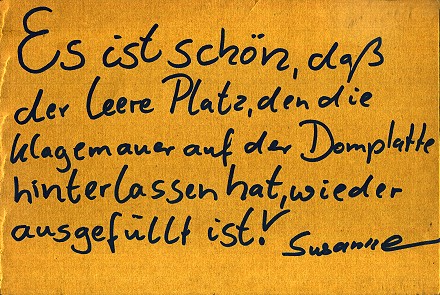 Es ist schön, daß
der leere Platz, den die
Klagemauer auf der Domplatte
hinterlassen hat, wieder
ausgefüllt ist!
Susanne